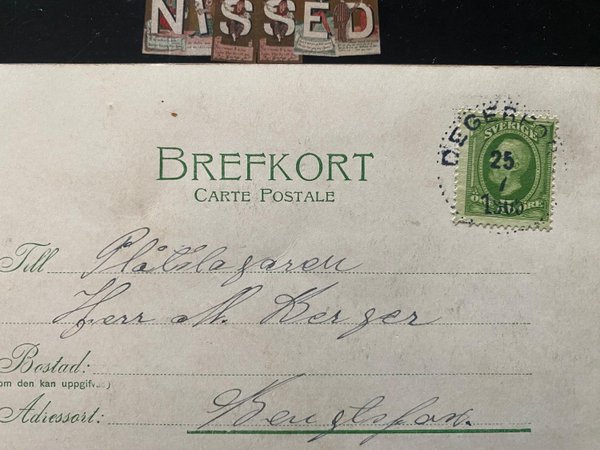 NISSED
BREFKORT
CARTE POSTALE
DEGERFO
25
7
SVERIGE
ÖRE
Till Plåtslagaren
Herr M. Berger
Bostad:
om den kan uppgifvas)
Adressort: Bengtsfors